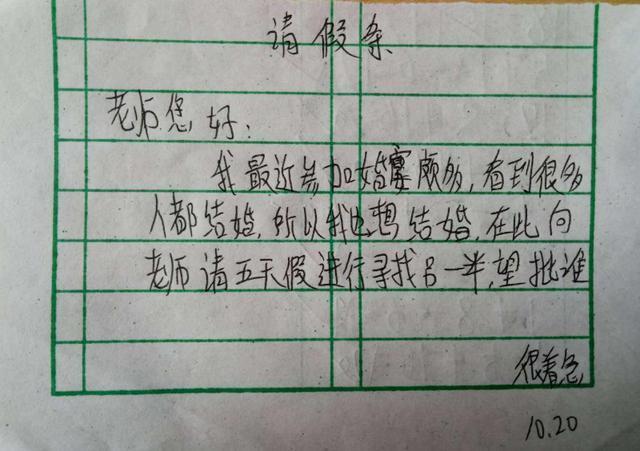 请假条
老师您好:
我最近参加婚宴颇多,看到很多
人都结婚,所以我也想结婚,在此向
老师请五天假进行寻找另一半,望批准
很着急
10.20